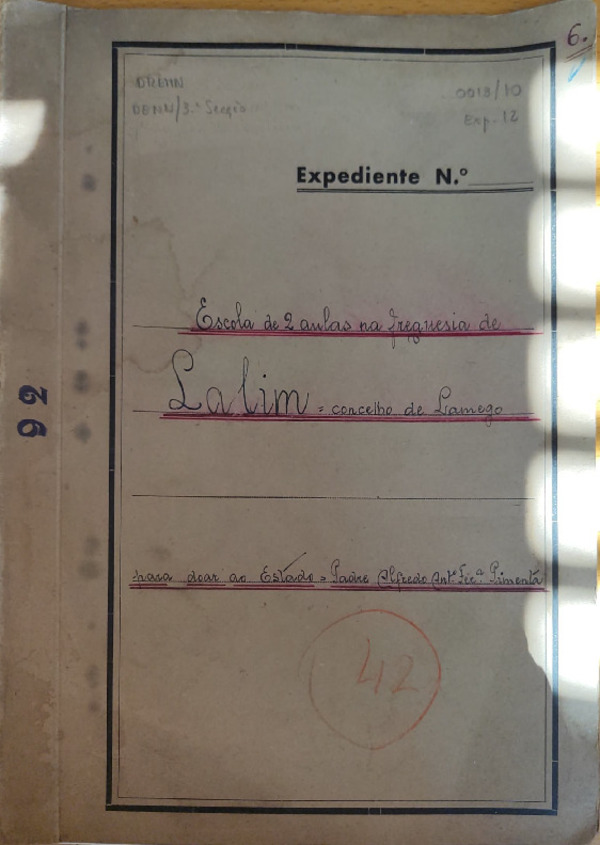 6.
DREMN
DEMN/3.ª Secção
0013/10
Exp. 12
Expediente N.º
Escola de 2 aulas na freguesia de
Lalim = concelho de Lamego
para doar ao Estado = Padre Alfredo Ant.º Fer.ª Pimenta
42
92